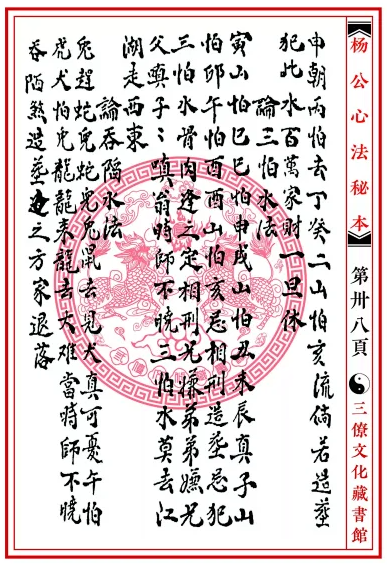 杨公心法秘本
第卅八頁
三僚文化藏書館
申朝丙怕去丁癸二山怕亥流倘若造塟
犯此水百萬家財一旦休
論三怕水法
寅山怕巳巳怕申戌山怕丑未辰真子山
怕卯午怕酉酉山怕亥忌相刑造塟忌犯
三怕水骨肉逢之定相刑兄嫌弟弟嫌兄
父與子：嗔翁時師不曉三怕水莫去江
湖走西東
論吞陷水法
兔趕蛇兒蛇兒兔鼠去見犬真可憂午怕
虎犬怕兒龍龍來龍去大难當時師不曉
吞陷煞造塟之方家退落